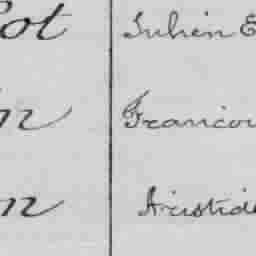 ot Julien E
n Francoi
n Aristide